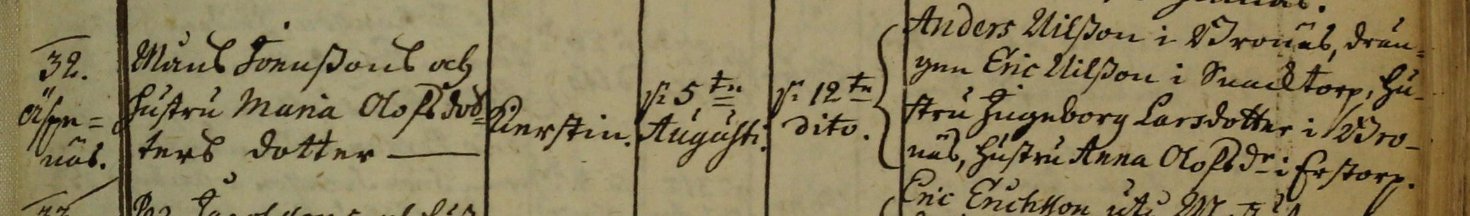 32.
Äspe=
näs.
Måns Svenßons och
hustru Maria Olofsdot=
ters dotter
Kierstin.
d: 5.te
Augusti.
d: 12te
dito.
Anders Nilßon i Bronäs, drän=
gen Eric Nilßon i torp, Hu=
stru Ingeborg Larsdotter i Bro=
näs, hustru Anna Olofsdr i Erstorp.
33.
Eric